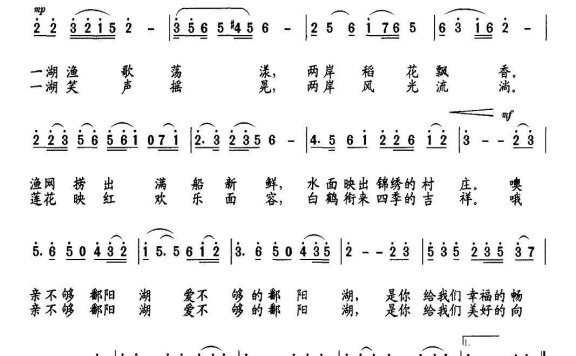 mp
2 2 3 2 1 5 2 - | 3 5 6 5 #4 5 6 - | 2 5 6 1 7 6 5 | 6 3 1 6 2 - |
一湖渔 歌 荡 漾， 两岸 稻 花 飘 香。
一湖笑 声 摇 晃， 两岸 风 光 流 淌。
mf
2 2 3 5 6 5 6 1 0 7 1 | 2. 3 2 3 5 6 - | 4. 5 6 1 2 2 6 1 2 | 3 - - 2 3 |
渔网 捞 出 满 船 新 鲜， 水 面 映出 锦绣的 村 庄。 噢
莲花 映 红 欢 乐 面 容， 白 鹤 衔来 四季的 吉 祥。 哦
5. 6 5 0 4 3 2 | 1 5. 5 6 1 2 | 3. 6 5 0 4 3 5 | 2 - - 2 3 | 5 3 5 2 3 5 3 7 |
亲不够 鄱阳 湖 爱不 够的 鄱 阳 湖， 是你 给我们 幸福的 畅
亲不够 鄱阳 湖 爱不 够的 鄱 阳 湖， 是你 给我们 美好的 向
1.